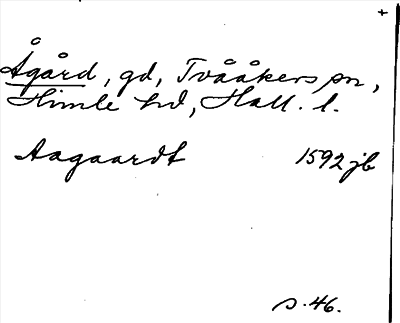 +
Ågård, gd, Tvååkers sn,
Himle hd, Hall. l.
Aagaardt 1592 jb
s. 46.